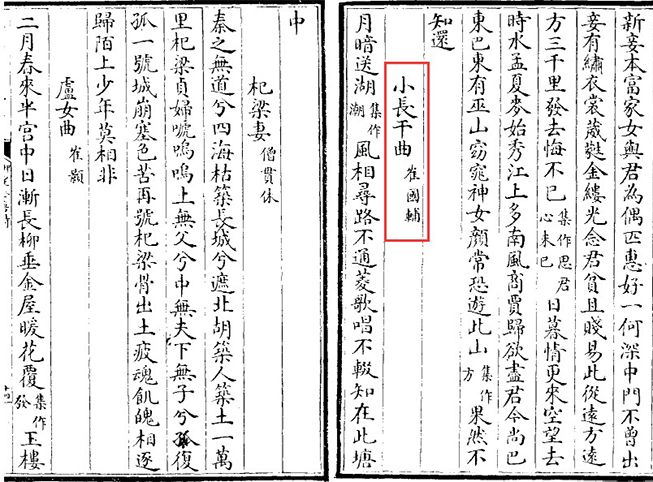 新妾本富家女與君為偶匹惠好一何深中門不曾出
妾有繡衣裳葳蕤金縷光念君貧且賤易此從遠方遠
方三千里發去悔不已集作思君心未已日暮情更來空望去
時水孟夏麥始秀江上多南風商賈歸欲盡君今尚巴
東巴東有巫山窈窕神女顏常恐遊此山集作方果然不
知還
小長干曲 崔國輔
月暗送湖集作潮風相尋路不通菱歌唱不輟知在此塘
中
杞梁妻 僧貫休
秦之無道兮四海枯築長城兮遮北胡築人築土一萬
里杞梁貞婦嗁嗚嗚上無父兮中無夫下無子兮孤復
孤一號城崩塞色苦再號杞梁骨出土疲魂飢魄相逐
歸陌上少年莫相非
盧女曲 崔顥
二月春來半宮中日漸長柳垂金屋暖花覆集作發玉樓